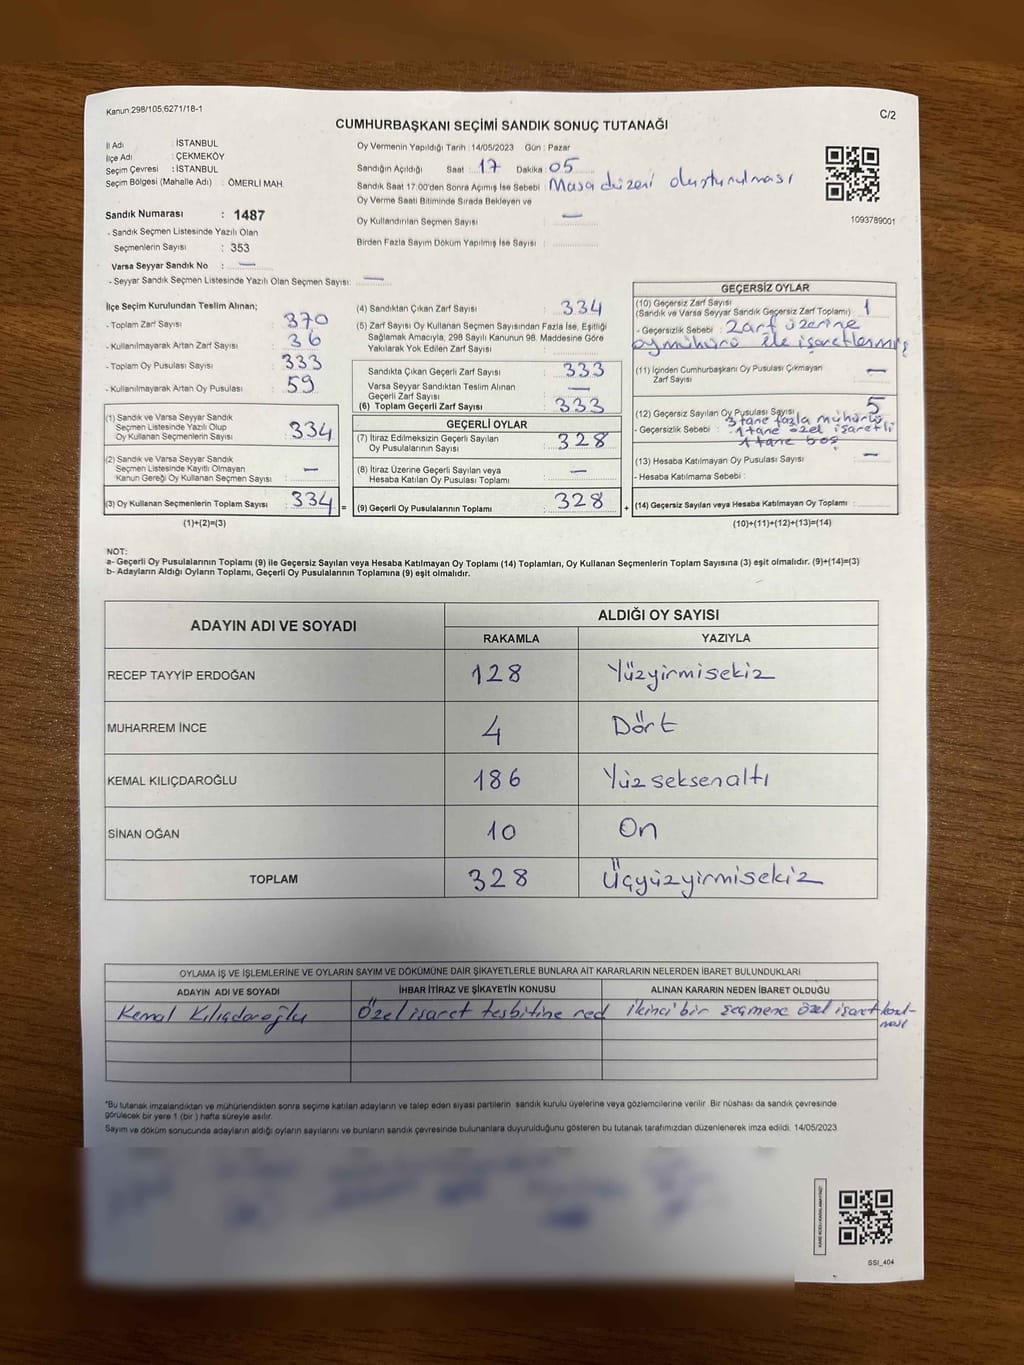 Kanun:298/105,6271/18-1
C/2
CUMHURBAŞKANI SEÇİMİ SANDIK SONUÇ TUTANAĞI
İl Adı : İSTANBUL
İlçe Adı : ÇEKMEKÖY
Seçim Çevresi : İSTANBUL
Seçim Bölgesi (Mahalle Adı) : ÖMERLİ MAH.
Sandık Numarası : 1487
- Sandık Seçmen Listesinde Yazılı Olan
Seçmenlerin Sayısı : 353
Varsa Seyyar Sandık No : —
- Seyyar Sandık Seçmen Listesinde Yazılı Olan Seçmen Sayısı: —
Oy Vermenin Yapıldığı Tarih : 14/05/2023 Gün : Pazar
Sandığın Açıldığı Saat : 17 Dakika : 05
Sandık Saat 17:00'den Sonra Açımış İse Sebebi : Masa düzeni oluşturulması
Oy Verme Saati Bitiminde Sırada Bekleyen ve
Oy Kullandırılan Seçmen Sayısı : —
Birden Fazla Sayım Döküm Yapılmış İse Sayısı :
1093789001
İlçe Seçim Kurulundan Teslim Alınan;
- Toplam Zarf Sayısı : 370
- Kullanılmayarak Artan Zarf Sayısı : 36
- Toplam Oy Pusulası Sayısı : 333
- Kullanılmayarak Artan Oy Pusulası : 59
(1) Sandık ve Varsa Seyyar Sandık
Seçmen Listesinde Yazılı Olup
Oy Kullanan Seçmenlerin Sayısı : 334
(2) Sandık ve Varsa Seyyar Sandık
Seçmen Listesinde Kayıtlı Olmayan
Kanun Gereği Oy Kullanan Seçmen Sayısı : —
(3) Oy Kullanan Seçmenlerin Toplam Sayısı : 334 =
(1)+(2)=(3)
(4) Sandıktan Çıkan Zarf Sayısı : 334
(5) Zarf Sayısı Oy Kullanan Seçmen Sayısından Fazla İse, Eşitliği
Sağlamak Amacıyla, 298 Sayılı Kanunun 98. Maddesine Göre
Yakılarak Yok Edilen Zarf Sayısı :
Sandıkta Çıkan Geçerli Zarf Sayısı : 333
Varsa Seyyar Sandıktan Teslim Alınan
Geçerli Zarf Sayısı : —
(6) Toplam Geçerli Zarf Sayısı : 333
GEÇERLİ OYLAR
(7) İtiraz Edilmeksizin Geçerli Sayılan
Oy Pusulalarının Sayısı : 328
(8) İtiraz Üzerine Geçerli Sayılan veya
Hesaba Katılan Oy Pusulası Toplamı : —
(9) Geçerli Oy Pusulalarının Toplamı : 328 +
GEÇERSİZ OYLAR
(10) Geçersiz Zarf Sayısı
(Sandık ve Varsa Seyyar Sandık Geçersiz Zarf Toplamı) : 1
- Geçersizlik Sebebi : Zarf üzerine
oy mühürü ile işaretlenmiş
(11) İçinden Cumhurbaşkanı Oy Pusulası Çıkmayan
Zarf Sayısı : —
(12) Geçersiz Sayılan Oy Pusulası Sayısı : 5
3 tane fazla mühürlü
- Geçersizlik Sebebi : 1 tane özel işaretli
1 tane boş
(13) Hesaba Katılmayan Oy Pusulası Sayısı : —
- Hesaba Katılmama Sebebi :
(14) Geçersiz Sayılan veya Hesaba Katılmayan Oy Toplamı :
(10)+(11)+(12)+(13)=(14)
NOT:
a- Geçerli Oy Pusulalarının Toplamı (9) ile Geçersiz Sayılan veya Hesaba Katılmayan Oy Toplamı (14) Toplamları, Oy Kullanan Seçmenlerin Toplam Sayısına (3) eşit olmalıdır. (9)+(14)=(3)
b- Adayların Aldığı Oyların Toplamı, Geçerli Oy Pusulalarının Toplamına (9) eşit olmalıdır.
ADAYIN ADI VE SOYADI
ALDIĞI OY SAYISI
RAKAMLA YAZIYLA
RECEP TAYYİP ERDOĞAN 128 Yüzyirmisekiz
MUHARREM İNCE 4 Dört
KEMAL KILIÇDAROĞLU 186 Yüzseksenaltı
SİNAN OĞAN 10 On
TOPLAM 328 Üçyüzyirmisekiz
OYLAMA İŞ VE İŞLEMLERİNE VE OYLARIN SAYIM VE DÖKÜMÜNE DAİR ŞİKAYETLERLE BUNLARA AİT KARARLARIN NELERDEN İBARET BULUNDUKLARI
ADAYIN ADI VE SOYADI İHBAR İTİRAZ VE ŞİKAYETİN KONUSU ALINAN KARARIN NEDEN İBARET OLDUĞU
Kemal Kılıçdaroğlu Özel işaret tesbitine red İkinci bir seçmene özel işaret
*Bu tutanak imzalandıktan ve mühürlendikten sonra seçime katılan adayların ve talep eden siyasi partilerin sandık kurulu üyelerine veya gözlemcilerine verilir. Bir nüshası da sandık çevresinde
görülecek bir yere 1 (bir ) hafta süreyle asılır.
Sayım ve döküm sonucunda adayların aldığı oyların sayılarını ve bunların sandık çevresinde bulunanlara duyurulduğunu gösteren bu tutanak tarafımızdan düzenlenerek imza edildi. 14/05/2023
SSI_404